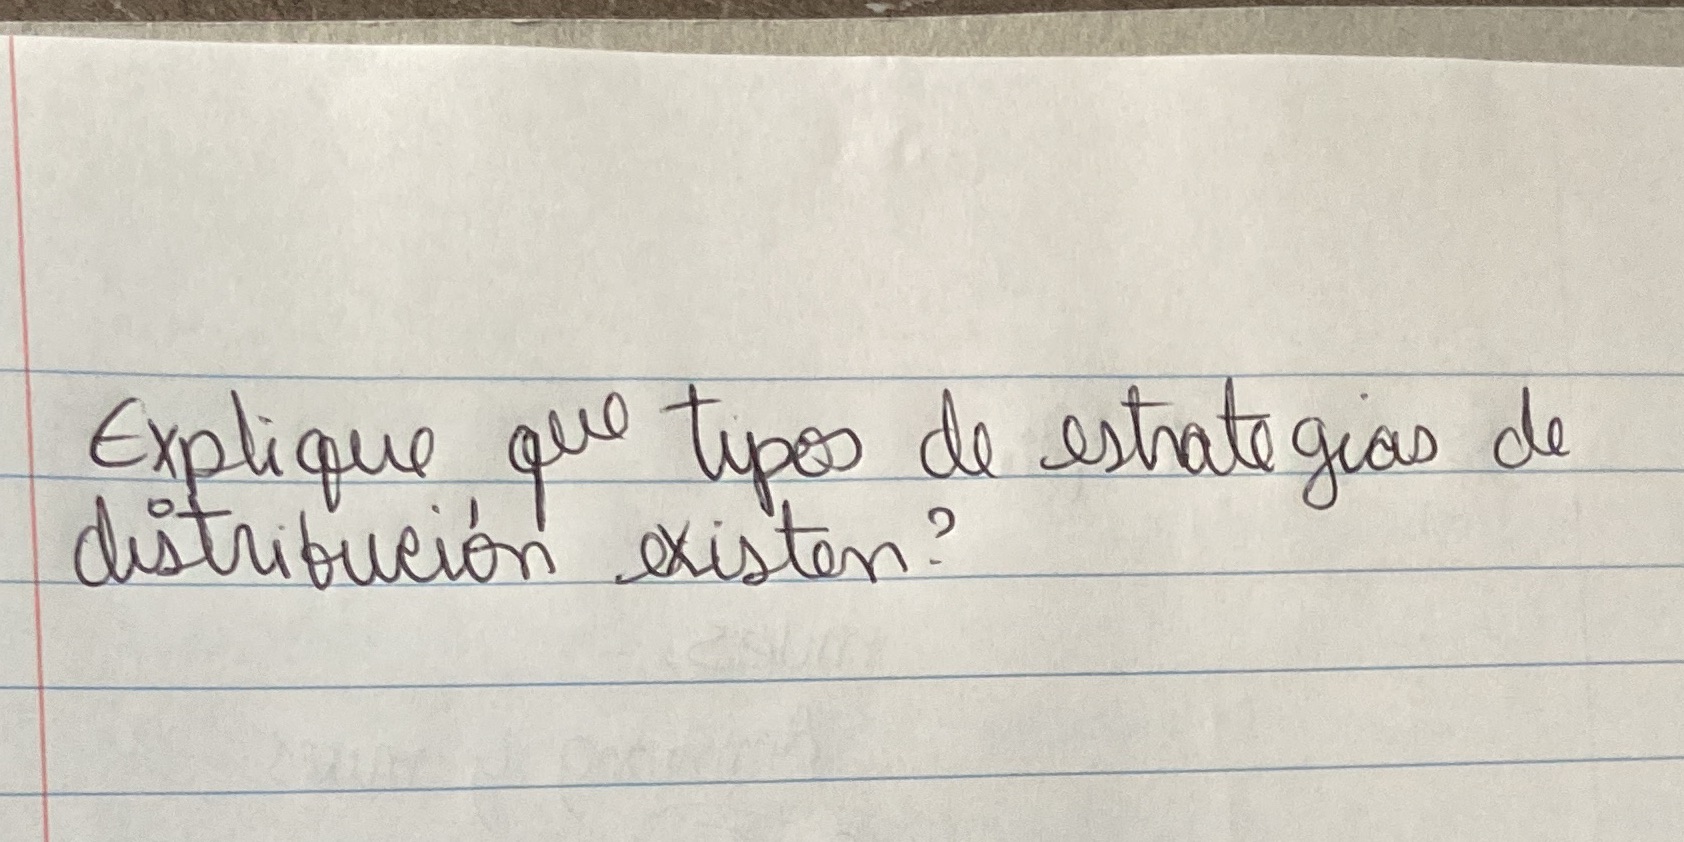 Explique que tipos de estrategias de
distribución existen?